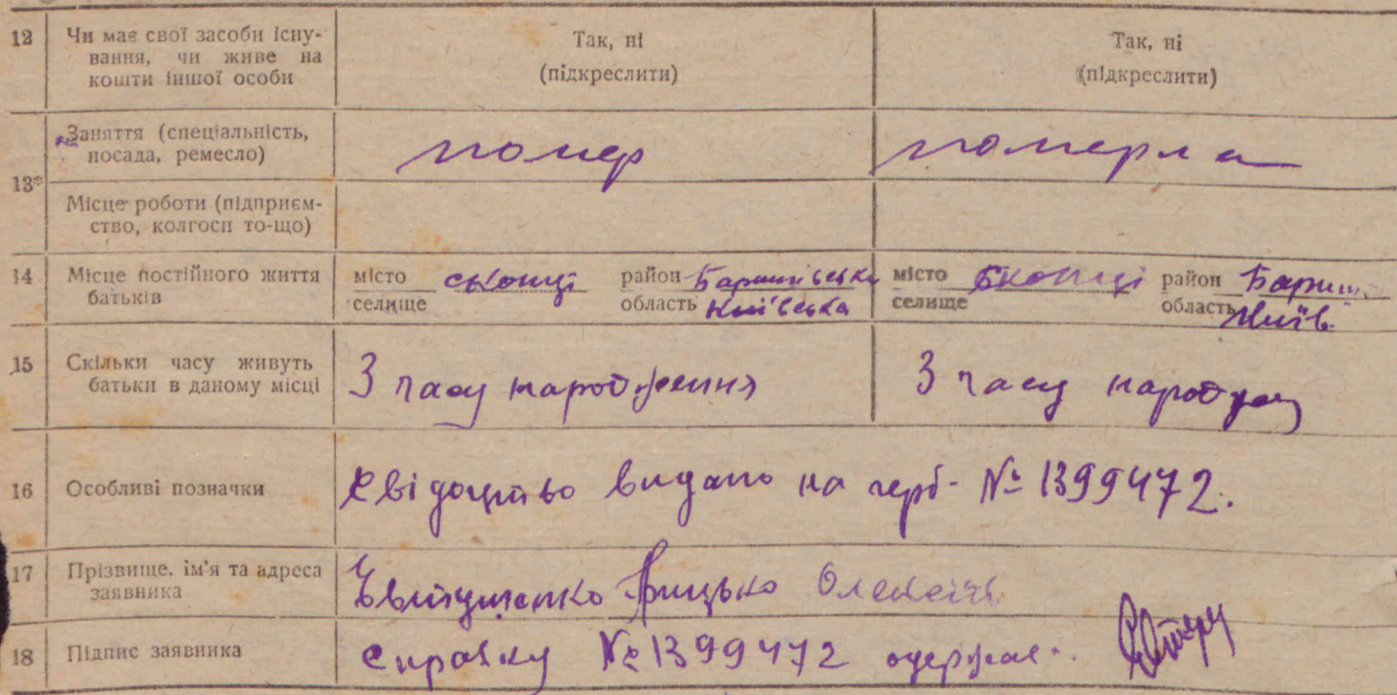 12 Чи має свої засоби існу-
вання, чи живе на
кошти іншої особи
Так, ні
(підкреслити)
Так, ні
(підкреслити)
13* Заняття (спеціальність,
посада, ремесло)
помер
померла
Місце роботи (підприєм-
ство, колгосп то-що)
14 Місце постійного життя
батьків
місто скопці район Баришівська
селище область Київська
місто скопці район Бариш.
селище область Київ.
15 Скільки часу живуть
батьки в даному місці
З часу народження
З часу народжен
16 Особливі позначки
Свідоцтво видано на герб. № 1399472.
17 Прізвище, ім'я та адреса
заявника
Грицько
18 Підпис заявника
справку № 1399472 одержав.